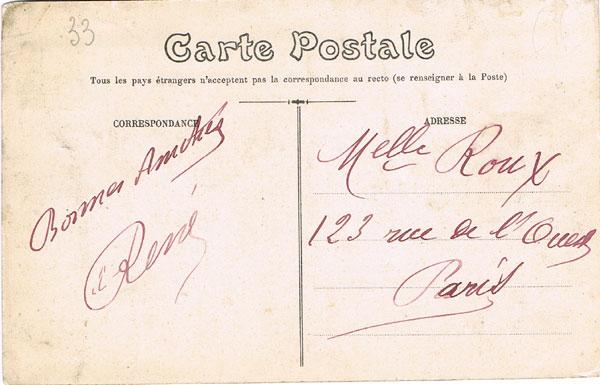 33
Carte Postale
Tous les pays étrangers n'acceptent pas la correspondance au recto (se renseigner à la Poste)
CORRESPONDANCE
Bonnes Amitiés
René
ADRESSE
Melle Roux
123 rue de l'Ouest
Paris